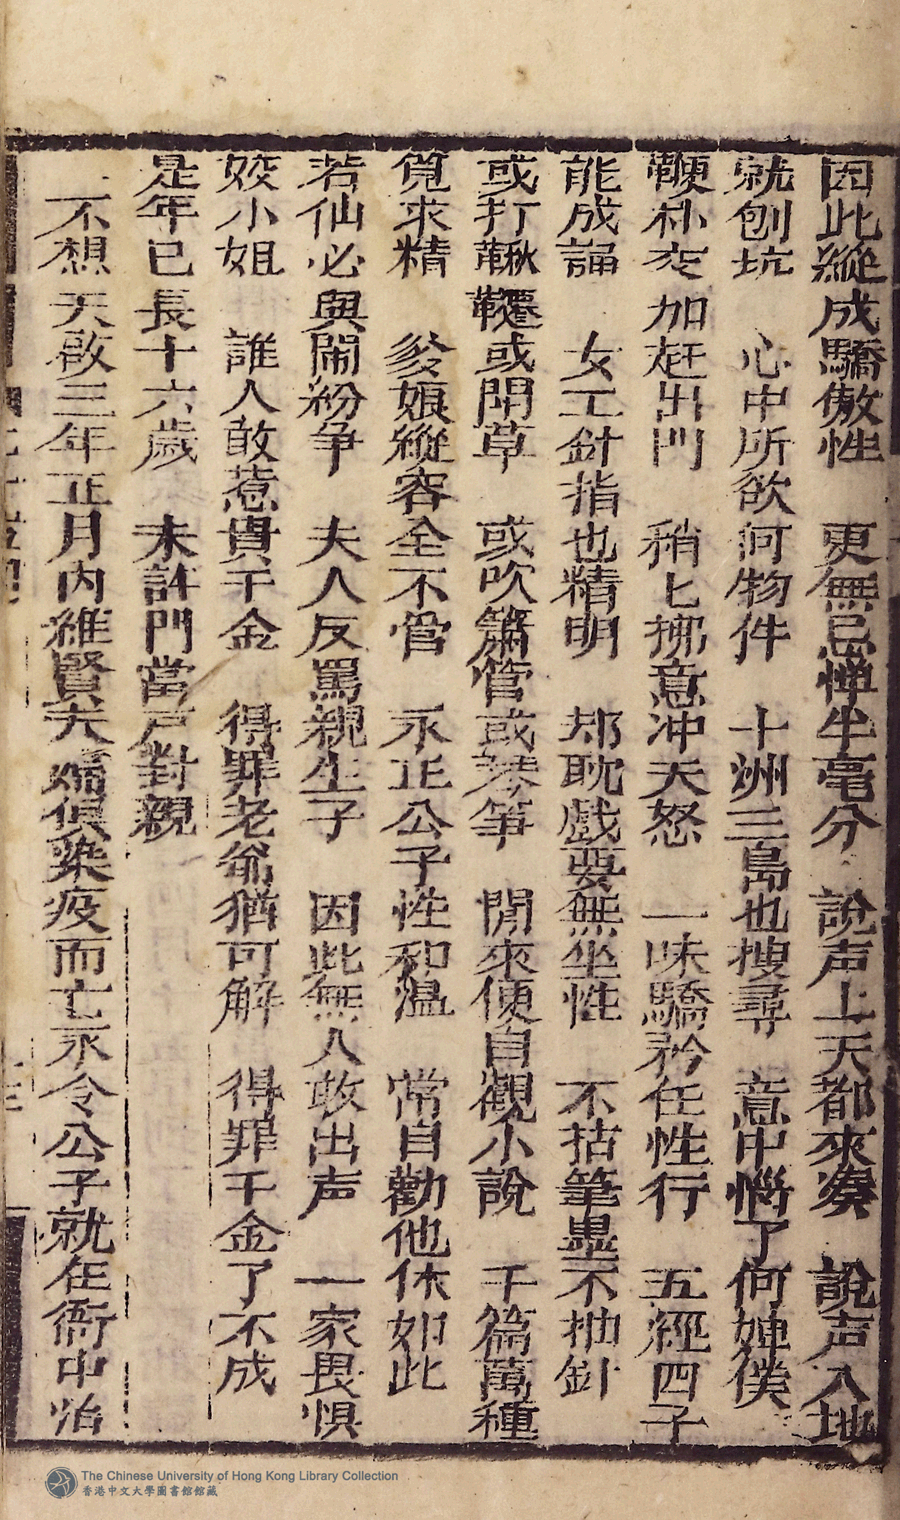 因此縱成驕傲性　更無忌憚半毫分　說声上天都來湊　說声入地
就刨坑　心中所欲何物件　十洲三島也搜尋　意中惱了何婢僕
鞭朴交加赶出門　稍匕拂意冲天怒　一味驕矜任性行　五經四子
能成誦　女工針指也精明　却耽戲耍無坐性　不拈筆墨不抽針
或打鞦韆或鬥草　或吹簫管或琴箏　閒來便自觀小說　千篇萬種
覓求精　爹娘縱容全不管　永正公子性和温　常自勸他休如此
若仙必與鬧紛争　夫人反罵親生子　因此無人敢出声　一家畏惧
姣小姐　誰人敢惹貴千金　得罪老爺猶可解　得罪千金了不成
是年已長十六歲　未許門當戶對親
不想天啟三年正月內維賢夫婦俱染疫而亡永令公子就在衙中治
The Chinese University of Hong Kong Library Collection
香港中文大學圖書館館藏